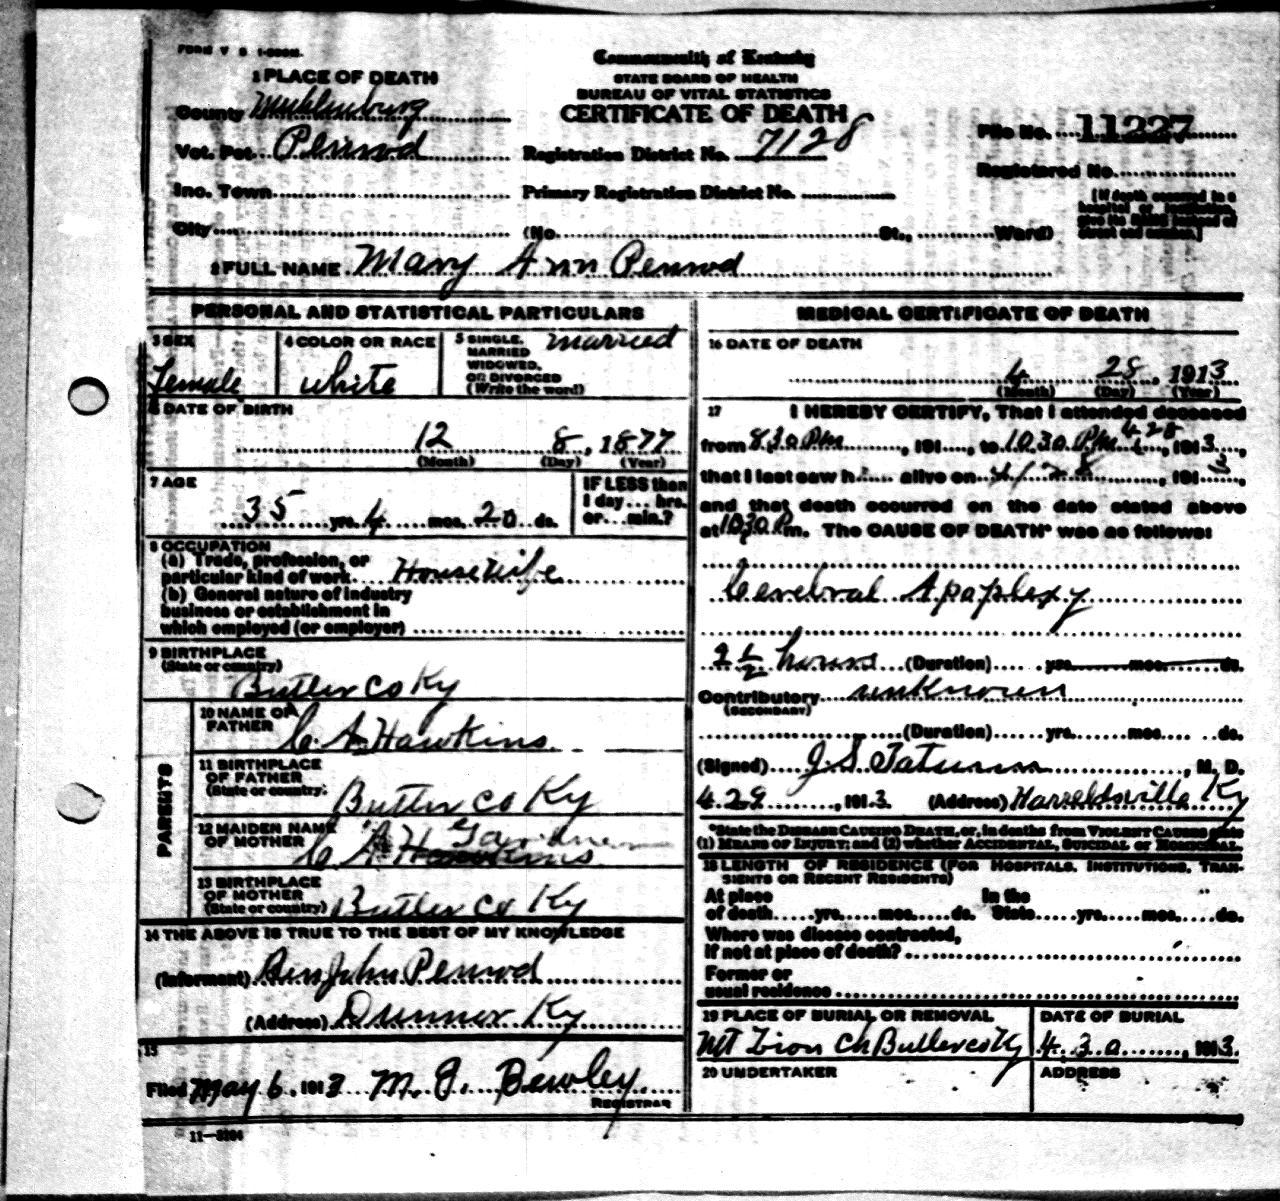 FORM V S 1-500M.
Commonwealth of Kentucky
STATE BOARD OF HEALTH
BUREAU OF VITAL STATISTICS
CERTIFICATE OF DEATH
1 PLACE OF DEATH
County Muhlenburg
Vot. Pct. Penrod
Inc. Town
City
Registration District No. 7128
Primary Registration District No.
(No. St., Ward)
File No. 11227
Registered No.
[If death occurred in a
hospital or institution,
give its NAME instead of
street and number.]
2 FULL NAME Mary Ann Penrod
PERSONAL AND STATISTICAL PARTICULARS
3 SEX
Female
4 COLOR OR RACE
white
5 SINGLE,
MARRIED
WIDOWED,
OR DIVORCED
(Write the word)
married
6 DATE OF BIRTH
12 8, 1877
(Month) (Day) (Year)
7 AGE
35 yrs. 4 mos. 20 ds.
IF LESS than
1 day ... hrs.
or ... min.?
8 OCCUPATION
(a) Trade, profession, or
particular kind of work HouseWife
(b) General nature of industry
business or establishment in
which employed (or employer)
9 BIRTHPLACE
(State or country)
Butler Co Ky
PARENTS
10 NAME OF
FATHER
C. A. Hawkins
11 BIRTHPLACE
OF FATHER
(State or country)
Butler Co Ky
12 MAIDEN NAME
OF MOTHER
C A Hawkins
13 BIRTHPLACE
OF MOTHER
(State or country)
Butler Co Ky
14 THE ABOVE IS TRUE TO THE BEST OF MY KNOWLEDGE
(Informant) Ben John Penrod
(Address) Dunnor Ky
15
Filed May 6, 1913 M. J. Bewley
REGISTRAR
11-3104
MEDICAL CERTIFICATE OF DEATH
16 DATE OF DEATH
4 28, 1913
(Month) (Day) (Year)
17 I HEREBY CERTIFY, That I attended deceased
from 8,30 Pm, 191 , to 10.30 Pm 4 28, 1913,
that I last saw h alive on 4/28, 1913,
and that death occurred on the date stated above
at 10,30 Pm. The CAUSE OF DEATH* was as follows:
Cerebral Apoplexy
2 1/2 hours (Duration) yrs. mos. ds.
Contributory unknown
(SECONDARY)
(Duration) yrs. mos. ds.
(Signed) J. S. Tatum, M. D.
4.29, 1913. (Address) Harreldsville Ky
*State the DISEASE CAUSING DEATH, or, in deaths from VIOLENT CAUSES state
(1) MEANS OF INJURY; and (2) whether ACCIDENTAL, SUICIDAL or HOMICIDAL.
18 LENGTH OF RESIDENCE (FOR HOSPITALS, INSTITUTIONS, TRAN-
SIENTS OR RECENT RESIDENTS)
At place In the
of death yrs. mos. ds. State yrs. mos. ds.
Where was disease contracted,
if not at place of death?
Former or
usual residence
19 PLACE OF BURIAL OR REMOVAL
Mt Zion Ch Butler co Ky
DATE OF BURIAL
4. 30, 1913.
20 UNDERTAKER
ADDRESS